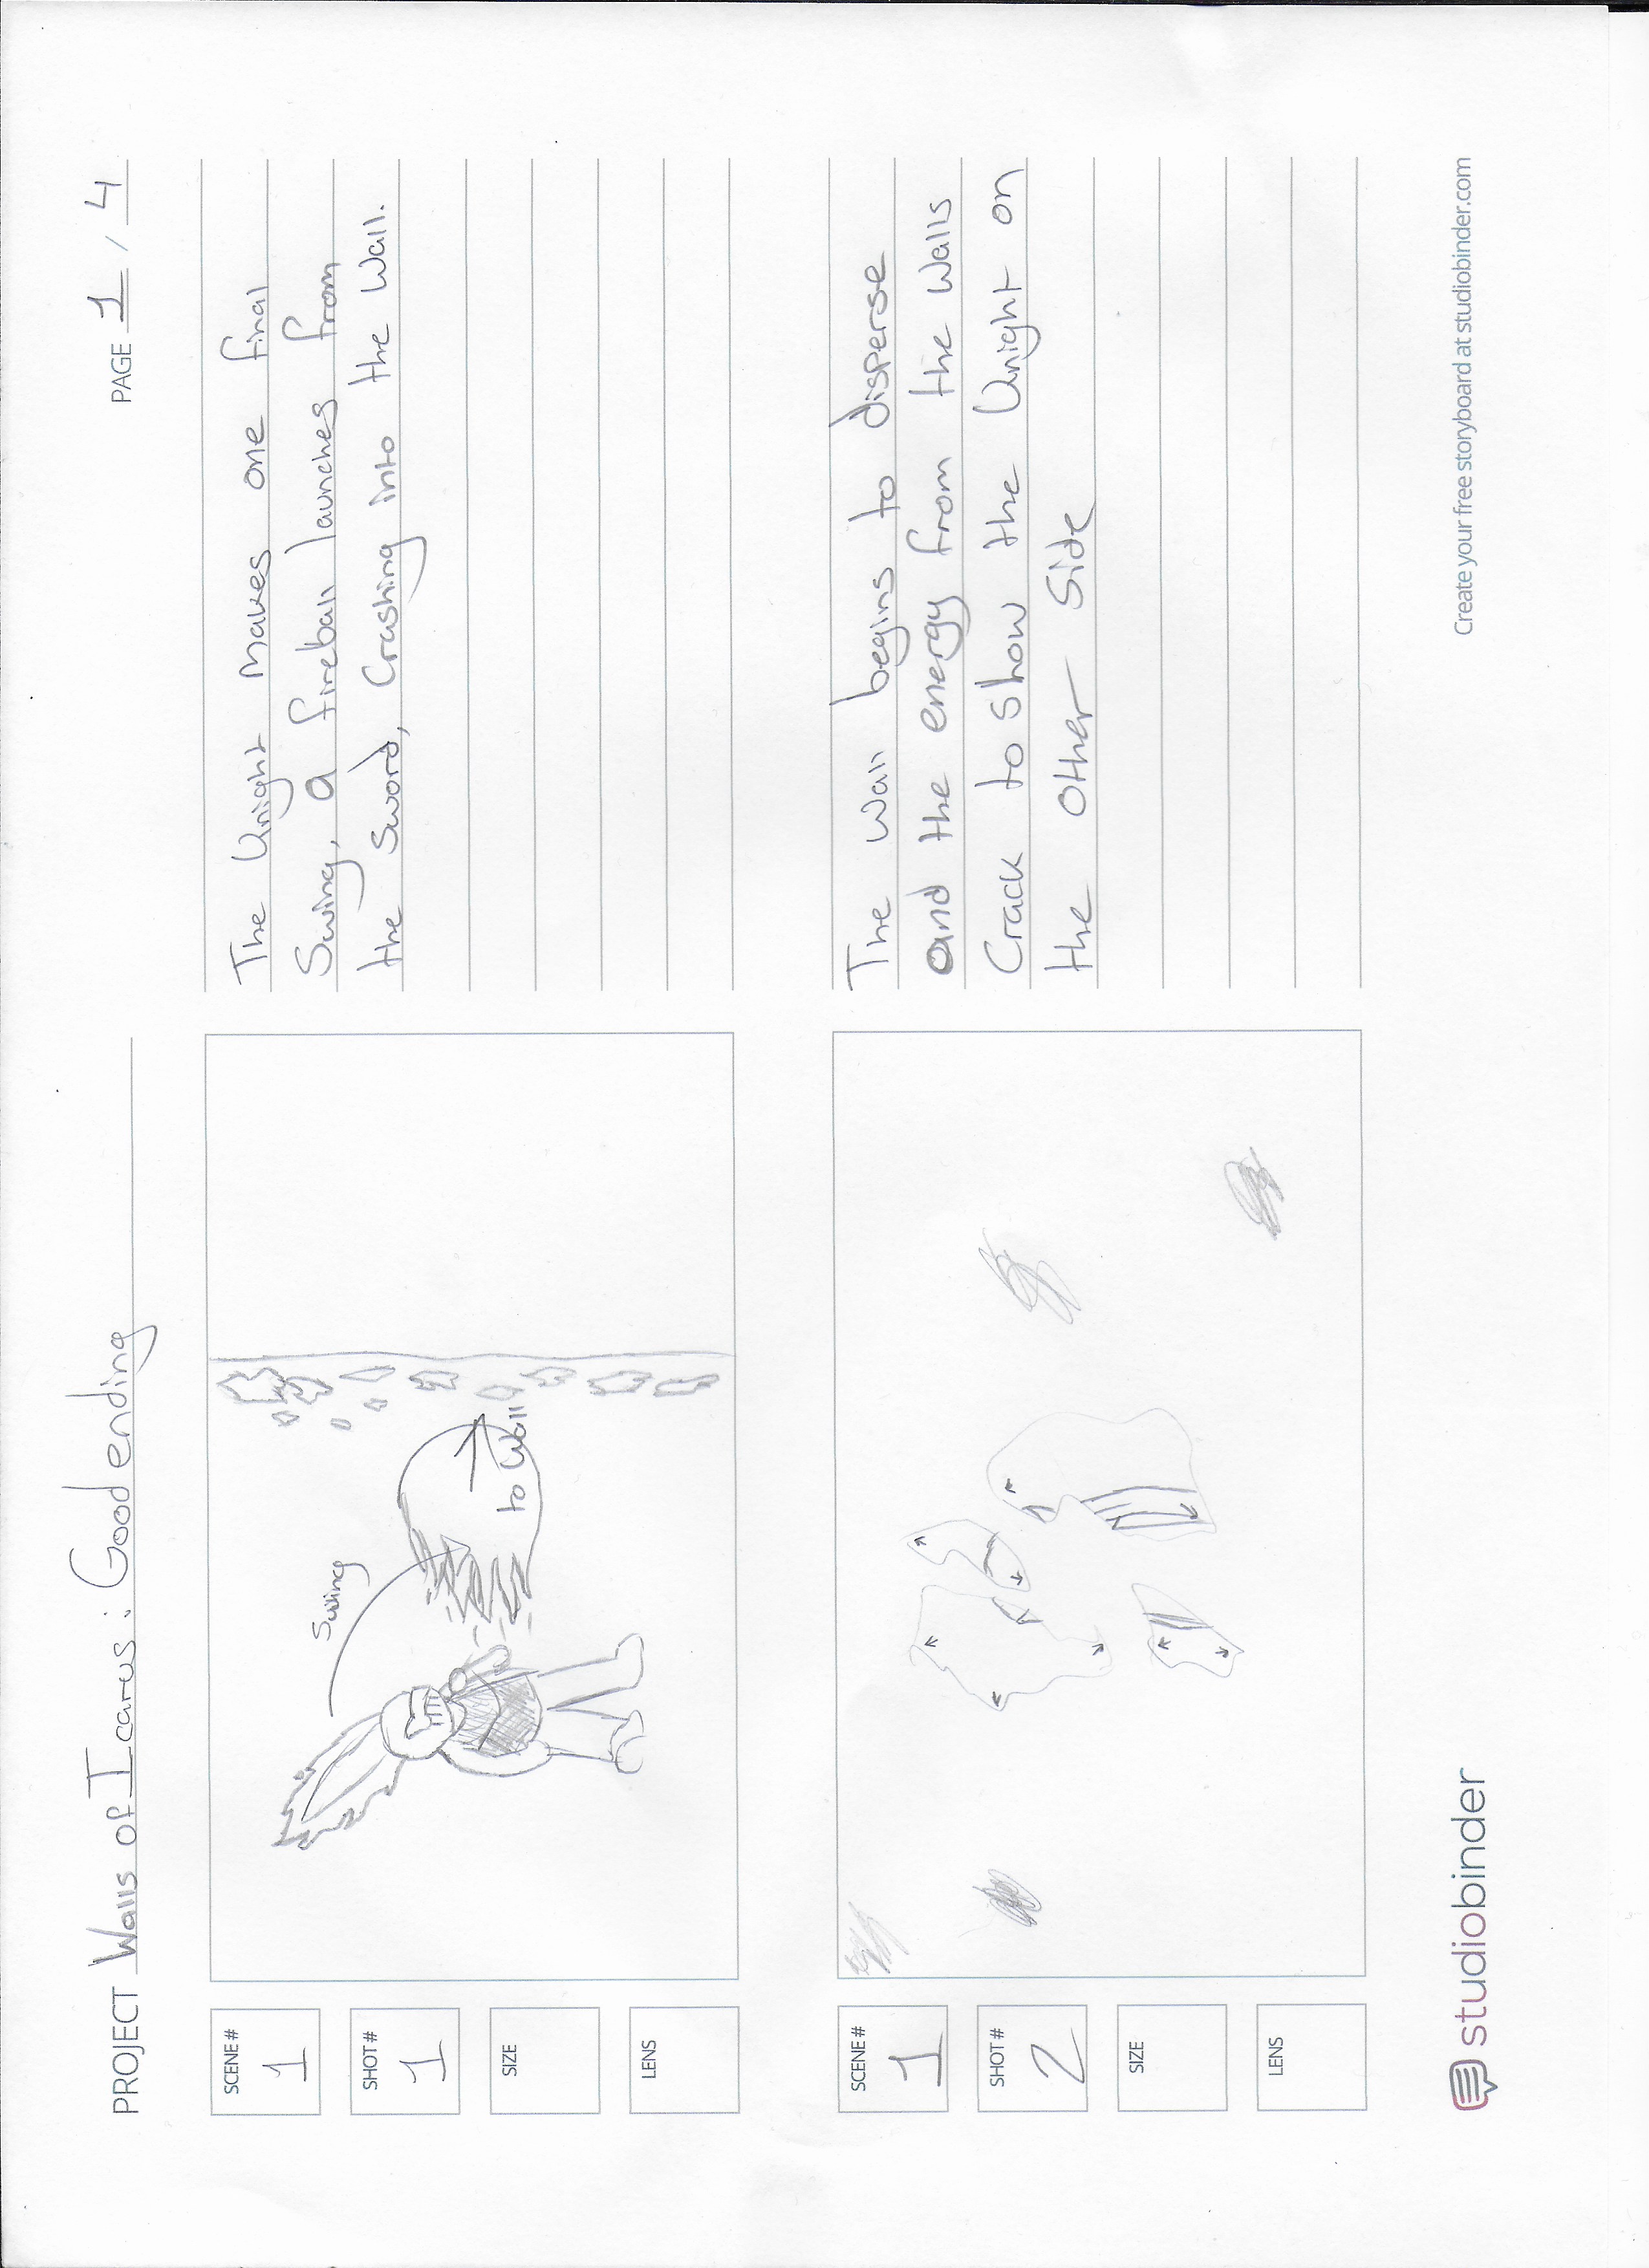 PROJECT Walls of Icarus: Good ending
PAGE 1 / 4
SCENE #
1
SHOT #
1
SIZE
LENS
Swing
to Wall
The Knight makes one final
Swing, a fireball launches from
the Sword, Crashing into the Wall.
SCENE #
1
SHOT #
2
SIZE
LENS
The Wall begins to disperse
and the energy from the Walls
Crack to show the Knight on
the Other Side
studiobinder
Create your free storyboard at studiobinder.com